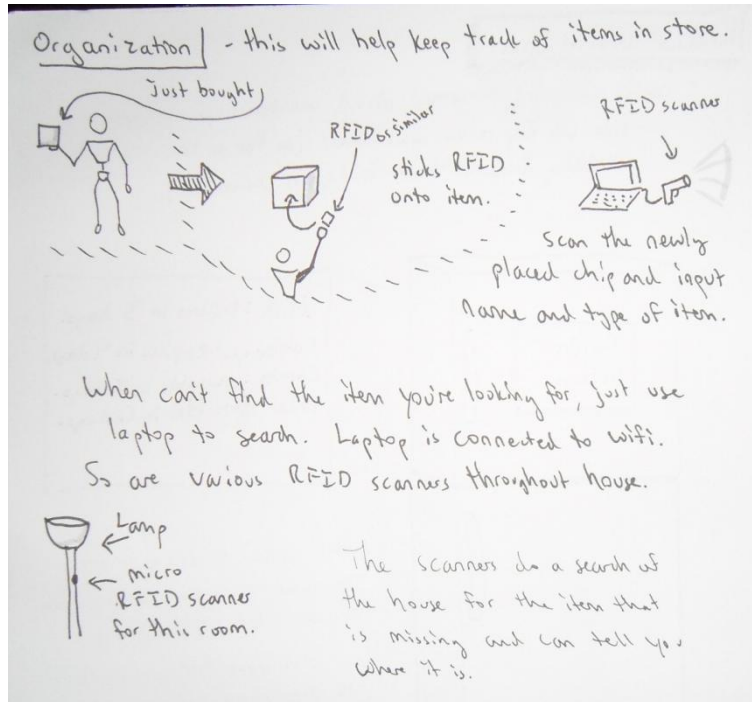 Organization - this will help keep track of items in store.
Just bought
RFID or similar
sticks RFID
onto item.
RFID scanner
scan the newly
placed chip and input
name and type of item.
When can't find the item you're looking for, just use
laptop to search. Laptop is connected to wifi.
So are various RFID scanners throughout house.
Lamp
micro
RFID scanner
for this room.
The scanners do a search of
the house for the item that
is missing and can tell you
where it is.